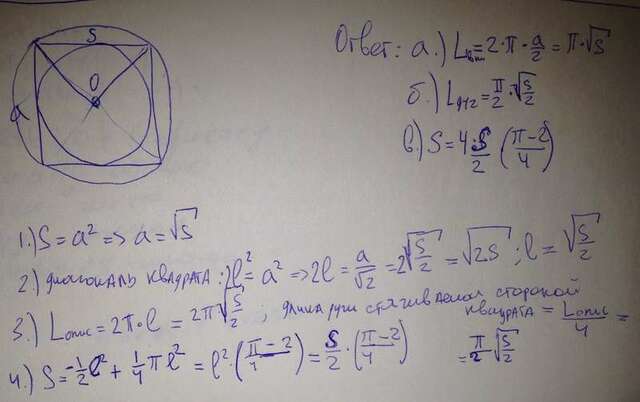 S
O
a
Ответ: а.) Lвпис=2·π·a/2=π·√S
б.) Lдуг=π/2·√(S/2)
в.) S=4·S/2(π-2/4)
1.) S=a²=>a=√S
2.) диагональ квадрата: 2l²=a²=>2l=a/√2=2√(S/2)=√2S; l=√(S/2)
3.) Lопис=2π·l=2π√(S/2); длина дуги стягиваемой стороной
квадрата=Lопис/4=
=π/2√(S/2)
4.) S=-1/2l²+1/4πl²=l²·(π-2/4)=S/2·(π-2/4)